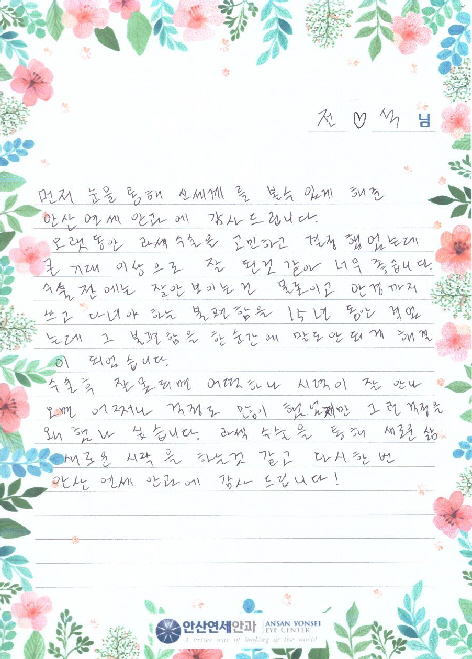 전 ♡ 석 님
먼저 눈을 통해 신세계를 볼수 있게 해준
안산연세안과에 감사드립니다.
오랫동안 라섹수술을 고민하고 걱정했었는데
큰 기대 이상으로 잘 된것 같아 너무 좋습니다.
수술 전에는 잘안보이는건 물론이고 안경까지
쓰고 다녀야 하는 불편함을 15년 동안 겪었
는데 그 불편함을 한순간에 말도안되게 해결
이 되었습니다.
수술후 잘못되면 어떡하나 시력이 잘 안나
오면 어쩌나 걱정도 많이 했었지만 그런 걱정을
왜 했나 싶습니다. 라섹 수술을 통해 새로운 삶
새로운 시작을 하는것 같고 다시한번
안산연세안과에 감사드립니다!
안산연세안과 ANSAN YONSEI EYE CENTER
A better way of looking at the world